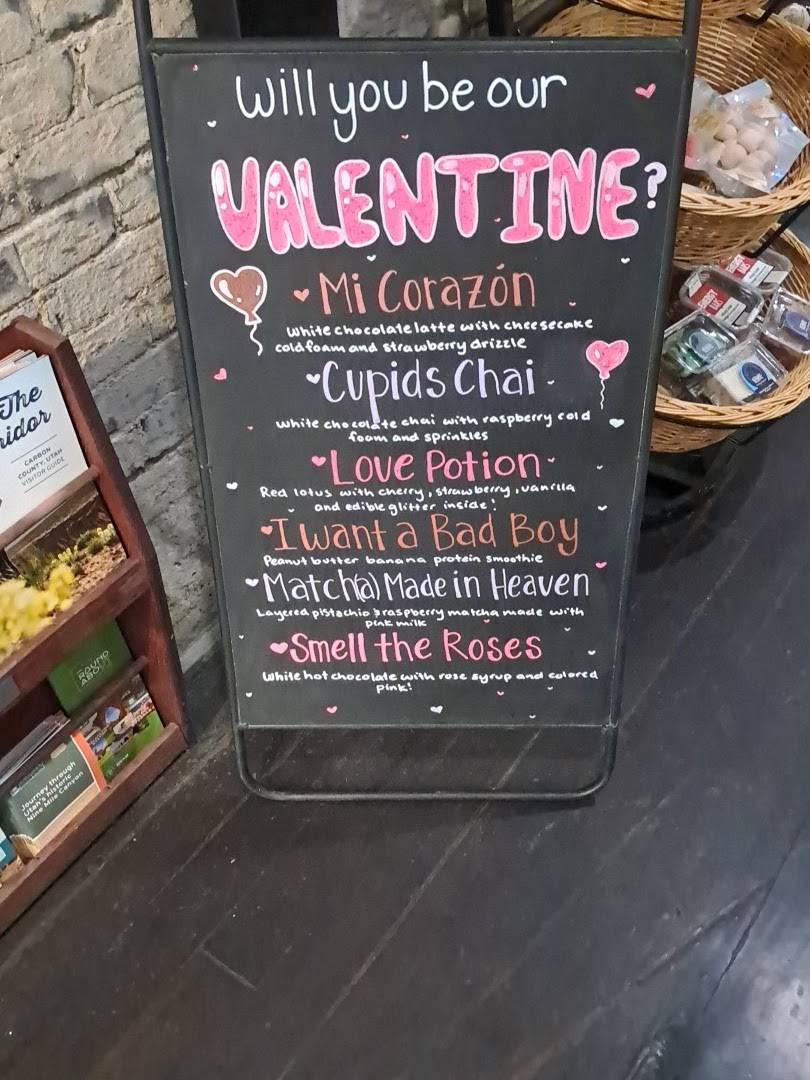 Will you be our
VALENTINE?
Mi Corazón
White chocolate latte with cheesecake
cold foam and strawberry drizzle
Cupids Chai
White chocolate chai with raspberry cold
foam and sprinkles
Love Potion
Red lotus with cherry, strawberry, vanilla
and edible glitter inside!
I want a Bad Boy
Peanut butter banana protein smoothie
Match(a) Made in Heaven
Layered pistachio & raspberry matcha made with
pink milk
Smell the Roses
White hot chocolate with rose syrup and colored
pink!
The
ridor
CARBON
COUNTY, UTAH
VISITOR GUIDE
ROUND
ABOUT
Journey through
Utah's historic
Nine Mile Canyon